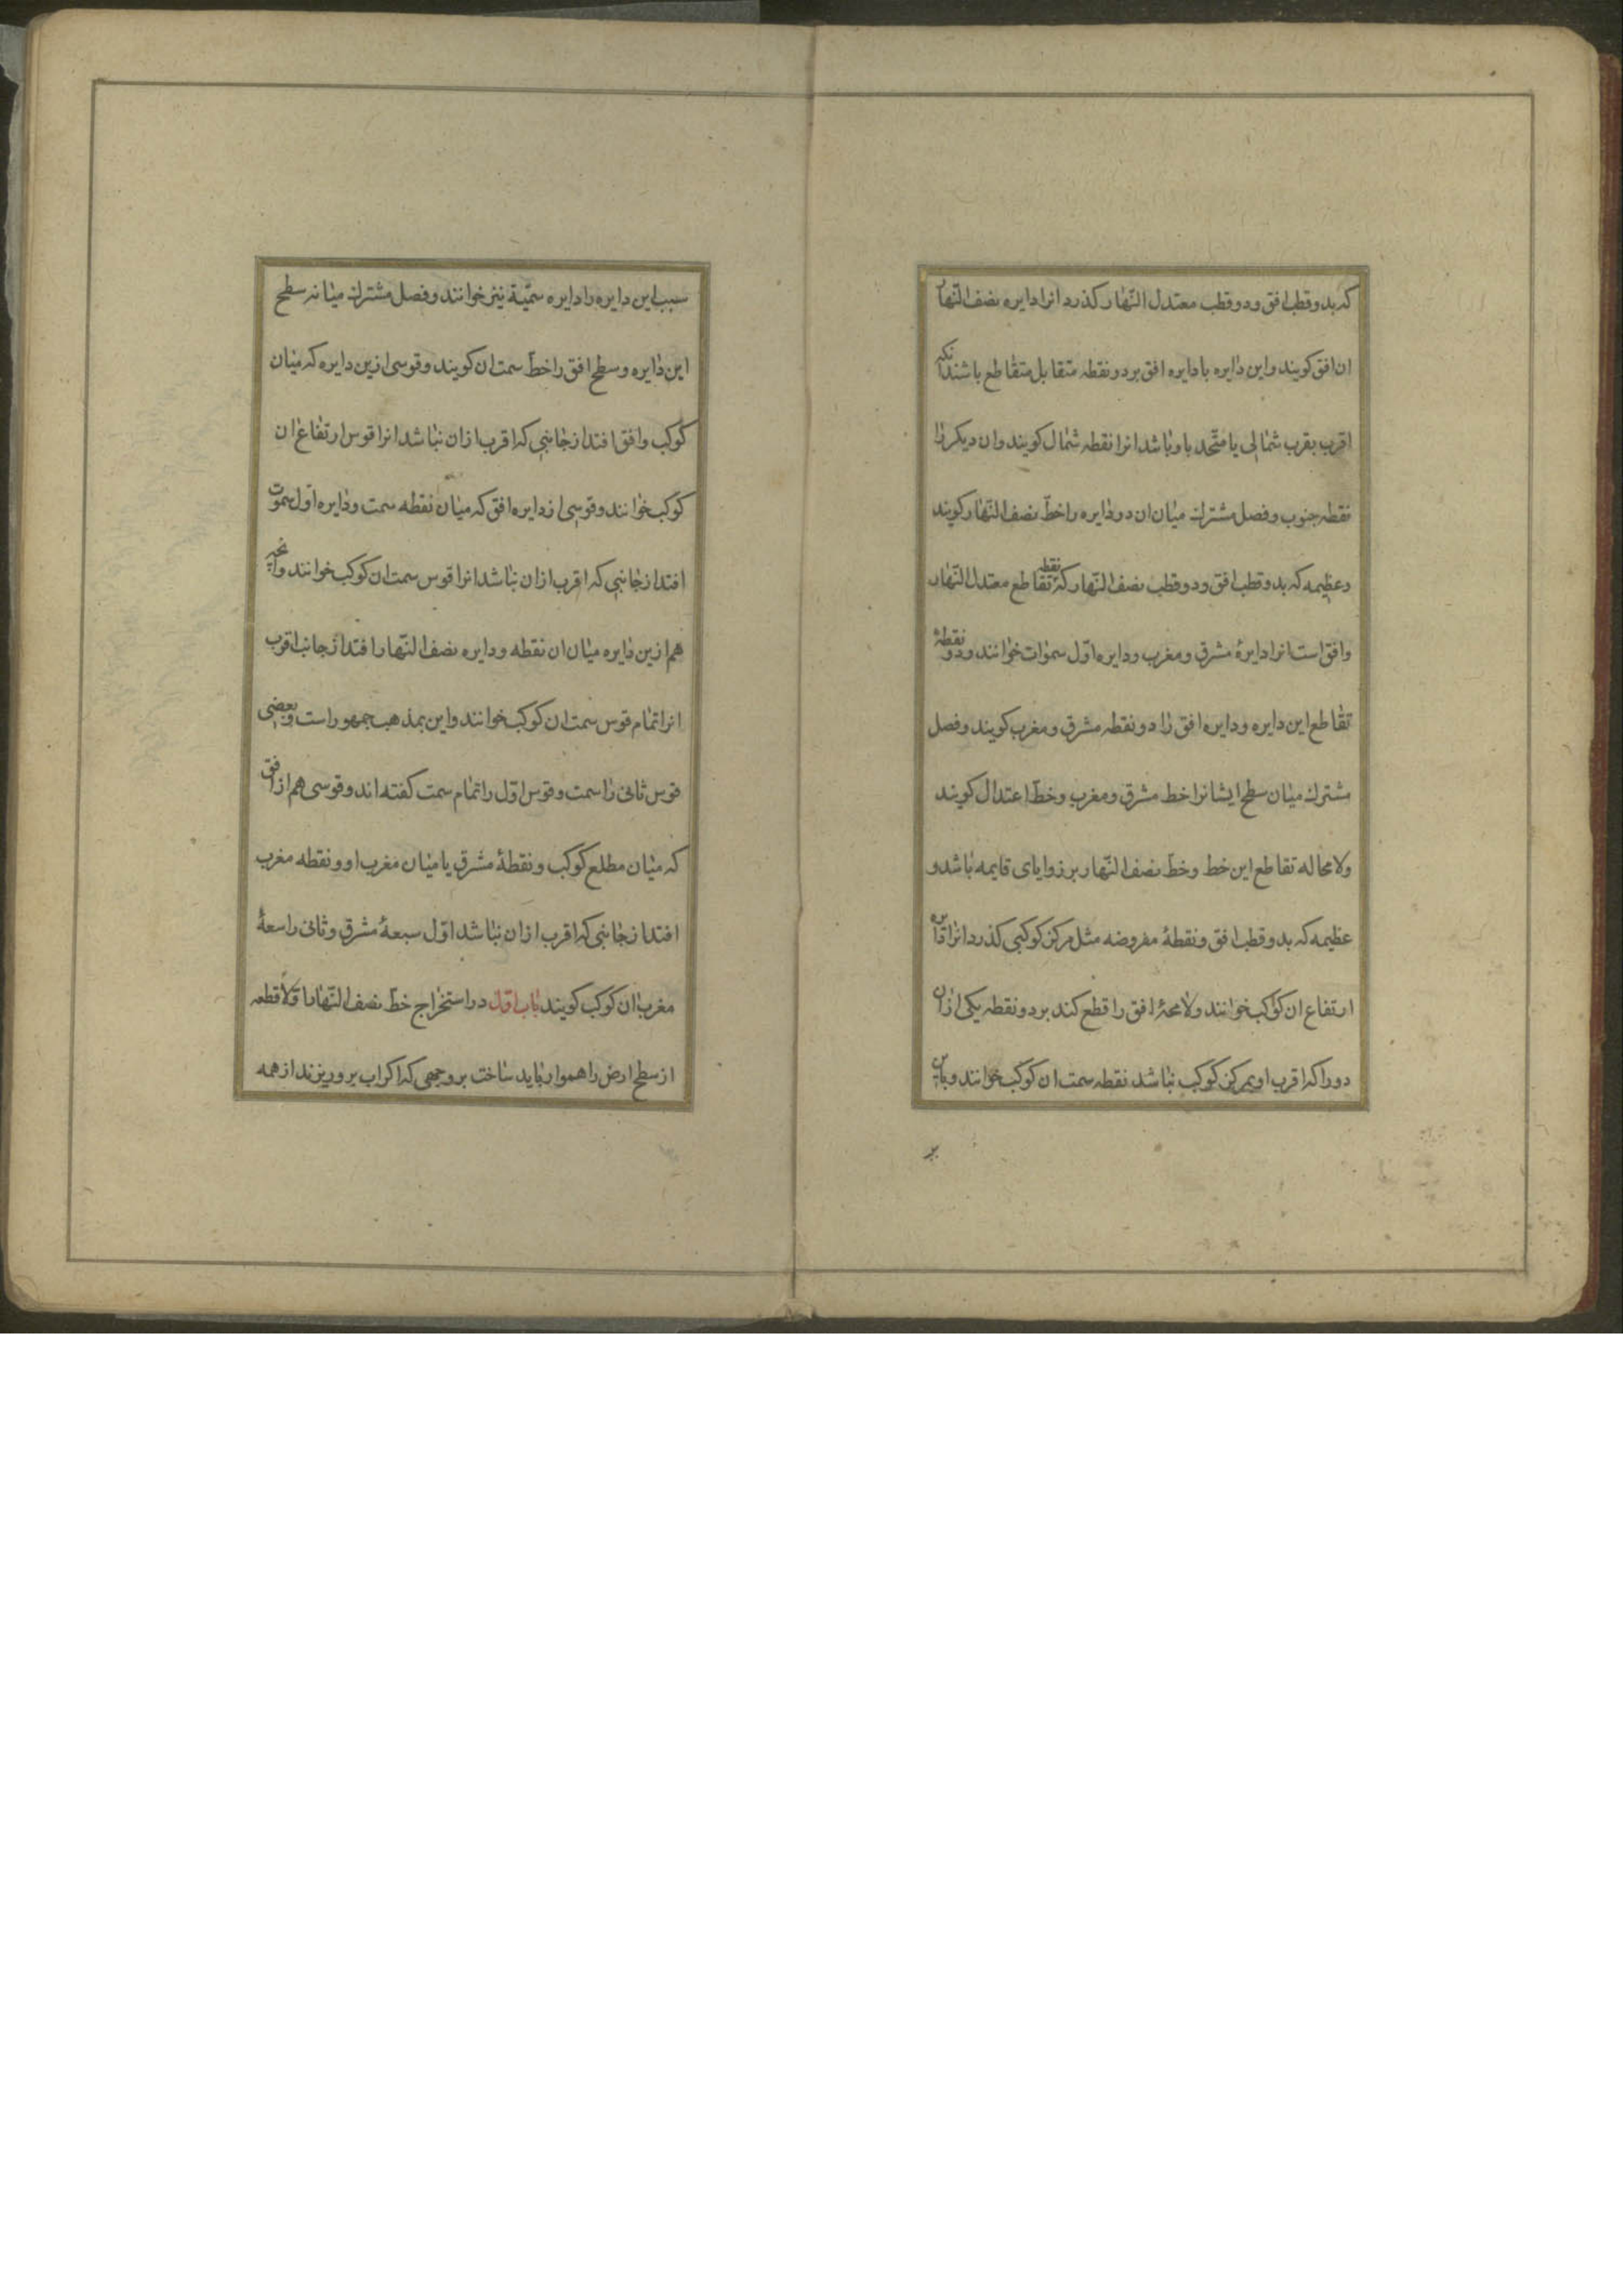 که بدو قطب افق و دو قطب معتدل النّهار کذرد انرا دایره نصف النّهار
ان افق کویند و این دایره با دایره افق بر دو نقطه متقابل متقاطع باشند انکه
اقرب بقرب شمالی یا متّحد باو باشد انرا نقطه شمال کویند وان دیکر را
نقطه جنوب و فصل مشترک میان ان دو دایره را خطّ نصف النّهار کویند
و عظیمه که بدو قطب افق و دو قطب نصف النّهار که نقطه تقاطع معتدل النّهار
و افق است انرا دایرهٔ مشرق و مغرب و دایره اوّل سموات خوانند و دو نقطهٔ
تقاطع این دایره و دایره افق را دو نقطه مشرق و مغرب کویند و فصل
مشترک میان سطح ایشانرا خط مشرق و مغرب و خطّ اعتدال کویند
ولا محاله تقاطع این خط و خطّ نصف النّهار بر زوایای قایمه باشد و
عظیمه که بدو قطب افق و نقطهٔ مفروضه مثل مرکز کوکبی کذرد انرا
ارتفاع ان کوکب خوانند و لا محهٔ افق را قطع کند بر دو نقطه یکی ازان
دو را که اقرب او بمرکز کوکب نباشد نقطه سمت ان کوکب خوانند و باین
سبب این دایره را دایره سمتیّة نیز خوانند و فصل مشترک میانه سطح
این دایره و سطح افق را خطّ سمت ان کویند و قوسی ازین دایره که میان
کوکب و افق افتد از جانبی که اقرب ازان نباشد انرا قوس ارتفاع ان
کوکب خوانند و قوسی از دایره افق که میان نقطه سمت و دایره اوّل سموت
افتد از جانبی که اقرب ازان نباشد انرا قوس سمت ان کوکب خوانند وانچه
هم ازین دایره میان ان نقطه و دایره نصف النّهار افتد از جانب اقرب
انرا تمام قوس سمت ان کوکب خوانند و این بمذهب جمهور راست و بعضی
قوس ثانی را سمت و قوس اوّل را تمام سمت کفته اند و قوسی هم از افق
که میان مطلع کوکب و نقطهٔ مشرق یا میان مغرب او و نقطه مغرب
افتد از جانبی که اقرب ازان نباشد اوّل سبعهٔ مشرق و ثانی را سعهٔ
مغرب ان کوکب کویند باب اوّل در استخراج خطّ نصف النّهار اوّلا قطعه
از سطح ارض را هموار باید ساخت بر وجهی که اکر اب برو ریزند از همه